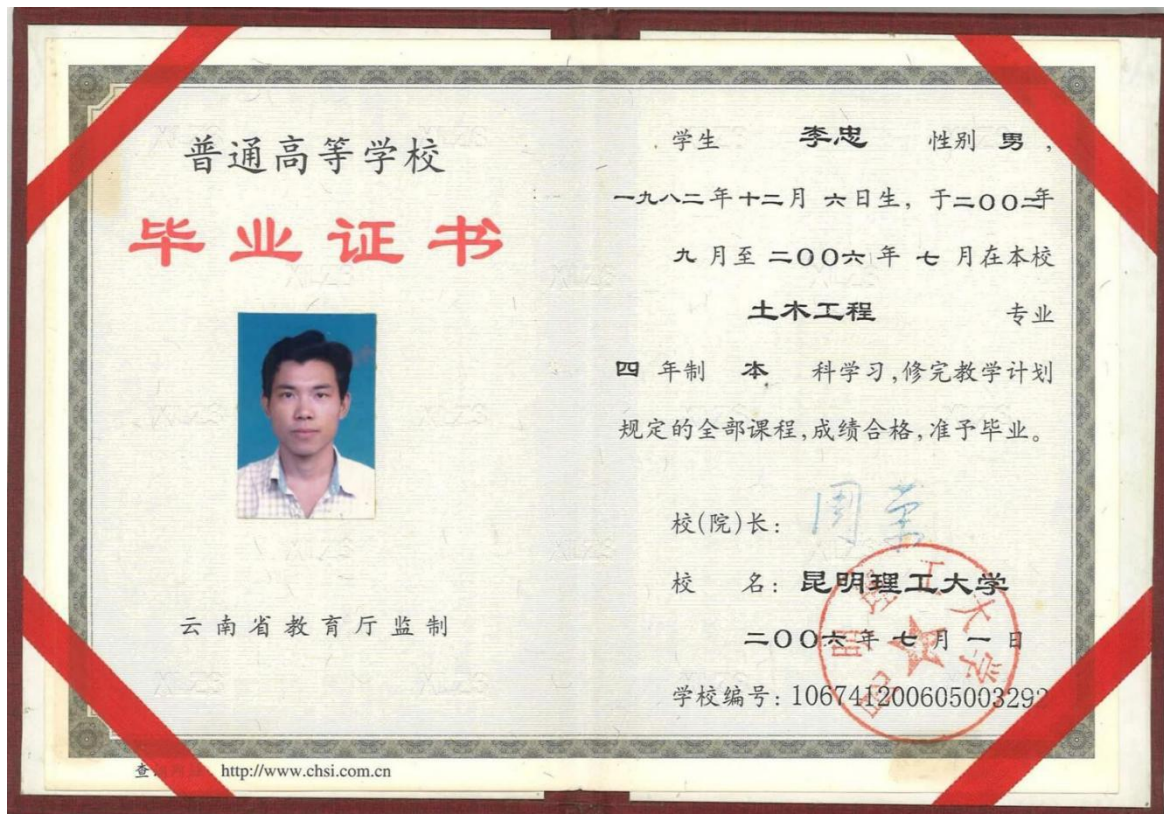 普通高等学校
毕业证书
云南省教育厅监制
http://www.chsi.com.cn
学生 李忠 性别 男,
一九八二年十二月六日生, 于二〇〇二年
九月至二〇〇六年七月在本校
土木工程 专业
四年制 本 科学习,修完教学计划
规定的全部课程,成绩合格,准予毕业。
校(院)长:
校 名: 昆明理工大学
二〇〇六年七月一日
学校编号: 10674120060500329
昆明理工大学